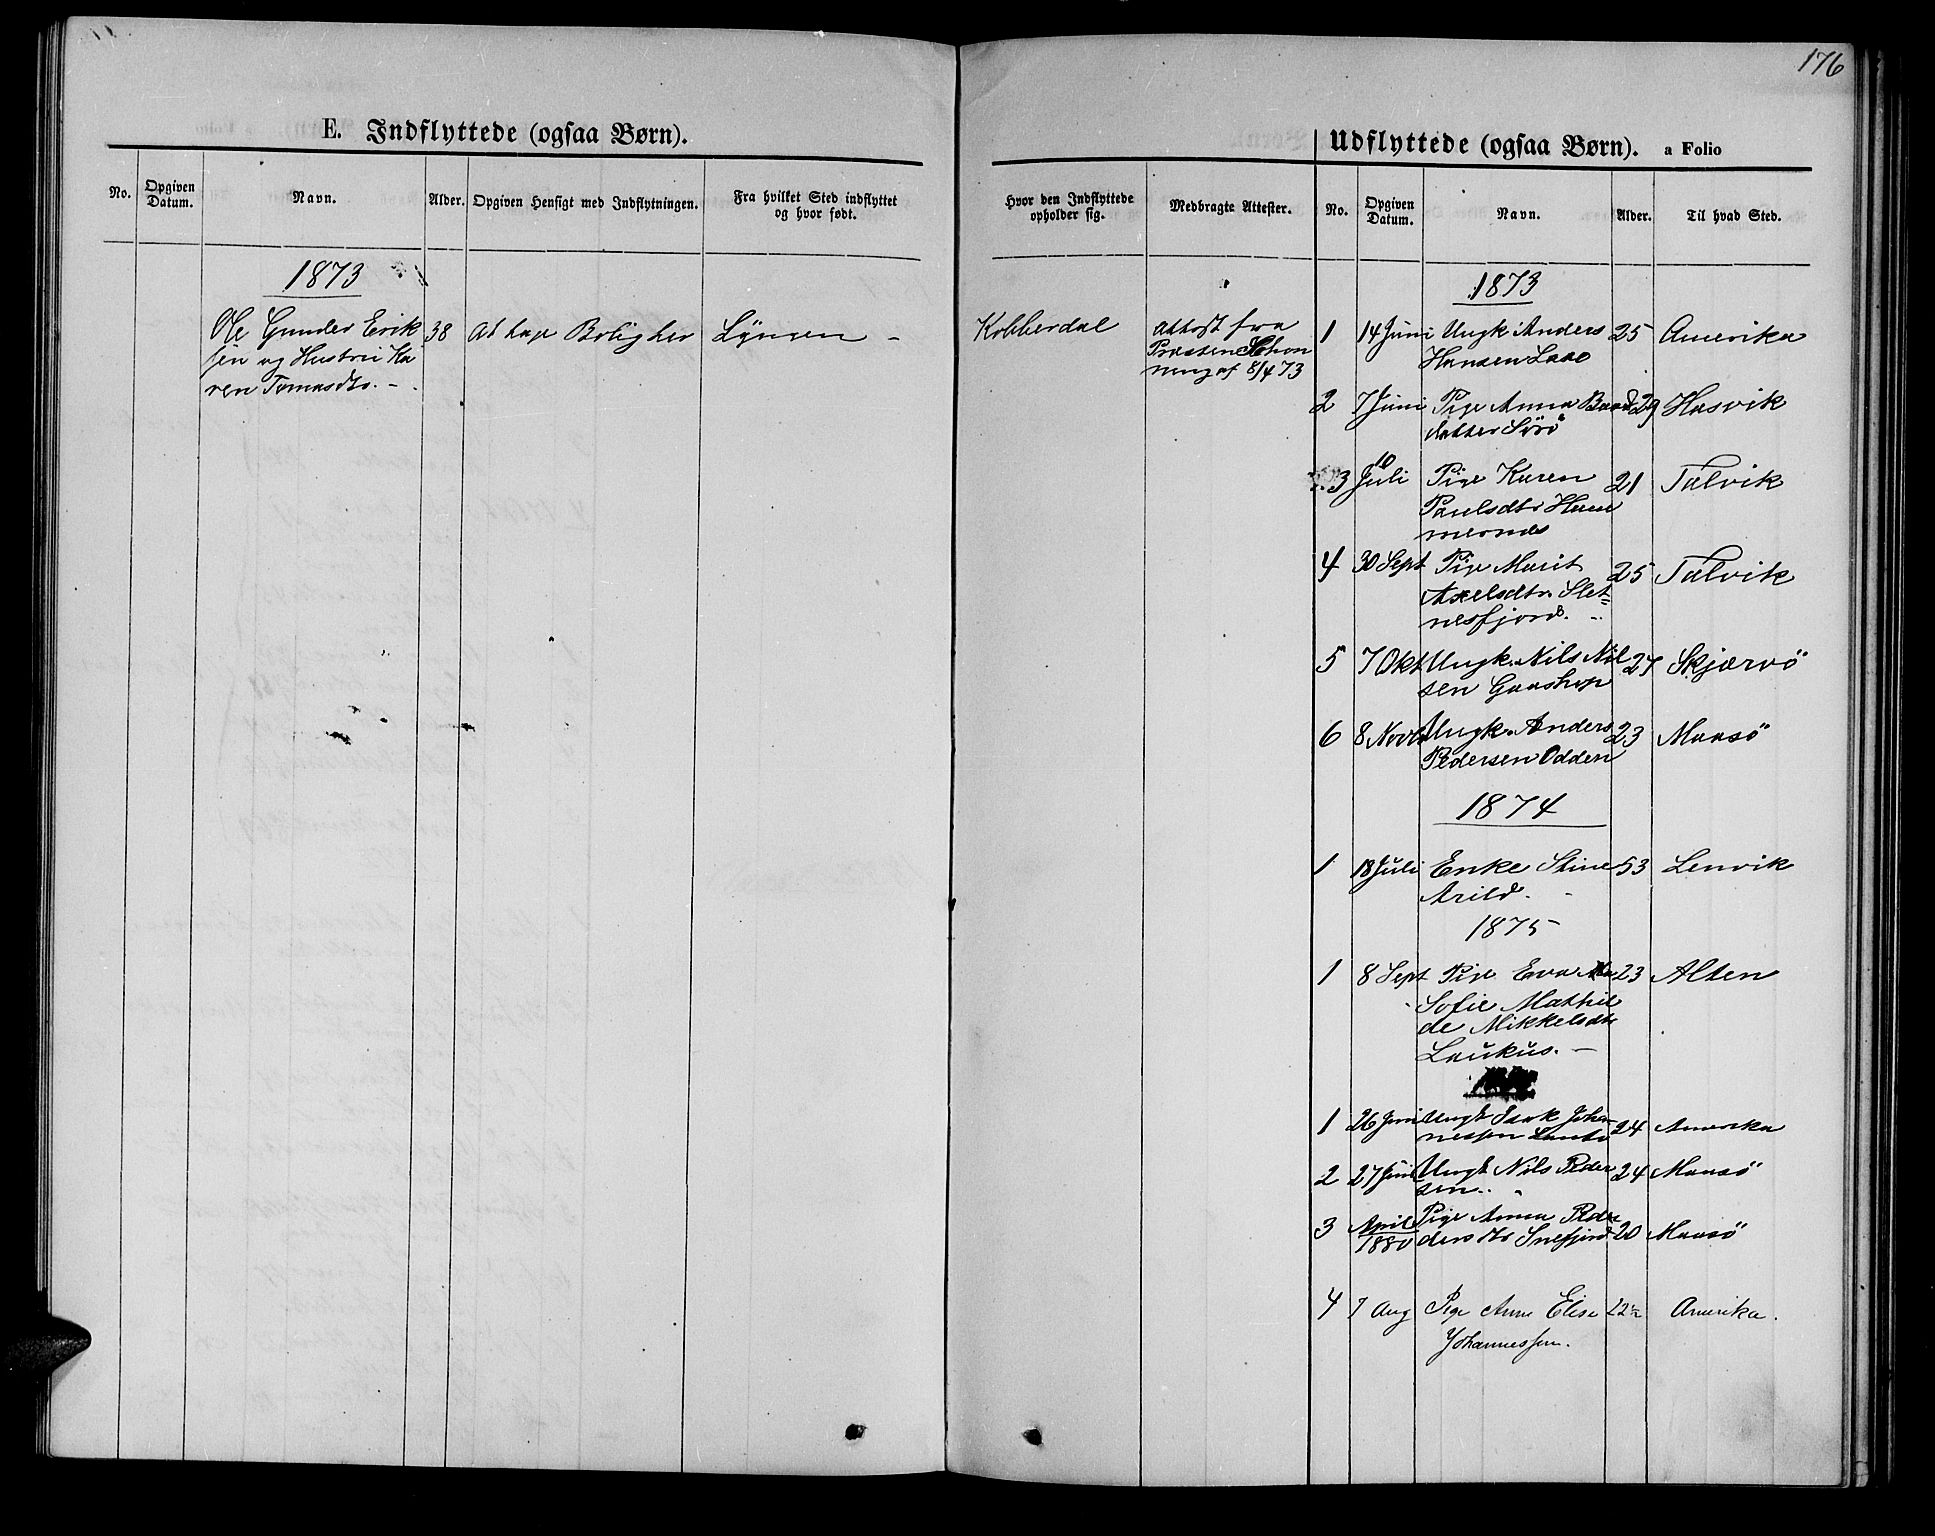 176
E. Indflyttede (ogsaa Børn).
No.
Opgiven Datum.
Navn.
Alder.
Opgiven Hensigt med Indflytningen.
Fra hvilket Sted indflyttet og hvor født.
Hvor den Indflyttede opholder sig.
Medbragte Attester.
1873
Ole Gunder Erik 38 At tage Bolig her Lyngen - Kobberdal Attest fra
sen og Hustru Ka Præsten Schon
ren Tomasdtr. - . ning af 8/4 73
Udflyttede (ogsaa Børn). a Folio
No.
Opgiven Datum.
Navn.
Alder.
Til hvad Sted.
1873
1 14 Juni Ungk Anders 25 Amerika
Hansen
2 7 Juni Pige Anna 29 Hasvik
datter Sörö
3 10 Juli Pige Karen 21 Talvik
Paulsdtr Ham
mernes
4 30 Sept Pige Marit 25 Talvik
Axelsdtr. Slet=
nesfjord.
5 7 Okt Ungk. Nils Nil 27 Skjærvö
sen Gaashop
6 8 Novb Ungk. Anders 23 Maasö
Pedersen Odden
1874
1 18 Juli Enke Stine 53 Lenvik
Arild.
1875
1 8 Sept Pige Eva 23 Alten
Sofie Mathil
de Mikkelsdtr
Laukus. -
1 26 Juni Ungk Isak Joha 24 Amerika
nessen
2 27 Juni Ungk Nils Peder 24 Maasö
sen.
3 April 1880 Pige Anna 20 Maasö
dersdtr Snefjord
4 7 Aug Pige Anne Elise 22½ Amerika.
Johannessen.